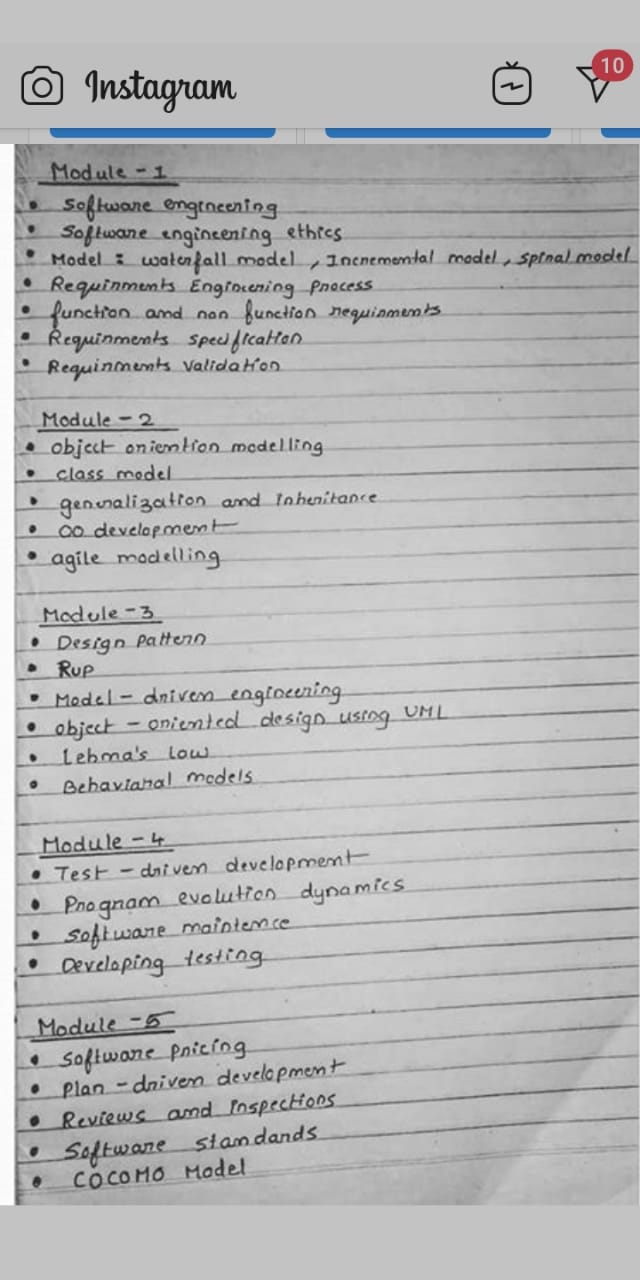 Instagram
10
Module - 1
• Software engineering
• Software engineering ethics
• Model : waterfall model , Incremental model , spiral model
• Requirments Engineering Process
• function and non function requirments
• Requirments specification
• Requirments Validation
Module - 2
• object oriention modelling
• class model
• generalization and Inheritance
• OO development
• agile modelling
Module - 3
• Design Pattern
• Rup
• Model - driven engineering
• object - oriented design using UML
• Lehma's low
• Behavioral models
Module - 4
• Test - driven development
• Program evolution dynamics
• Software maintence
• Developing testing
Module - 5
• Software pricing
• Plan - driven development
• Reviews and Inspections
• Software standards
• COCOMO Model